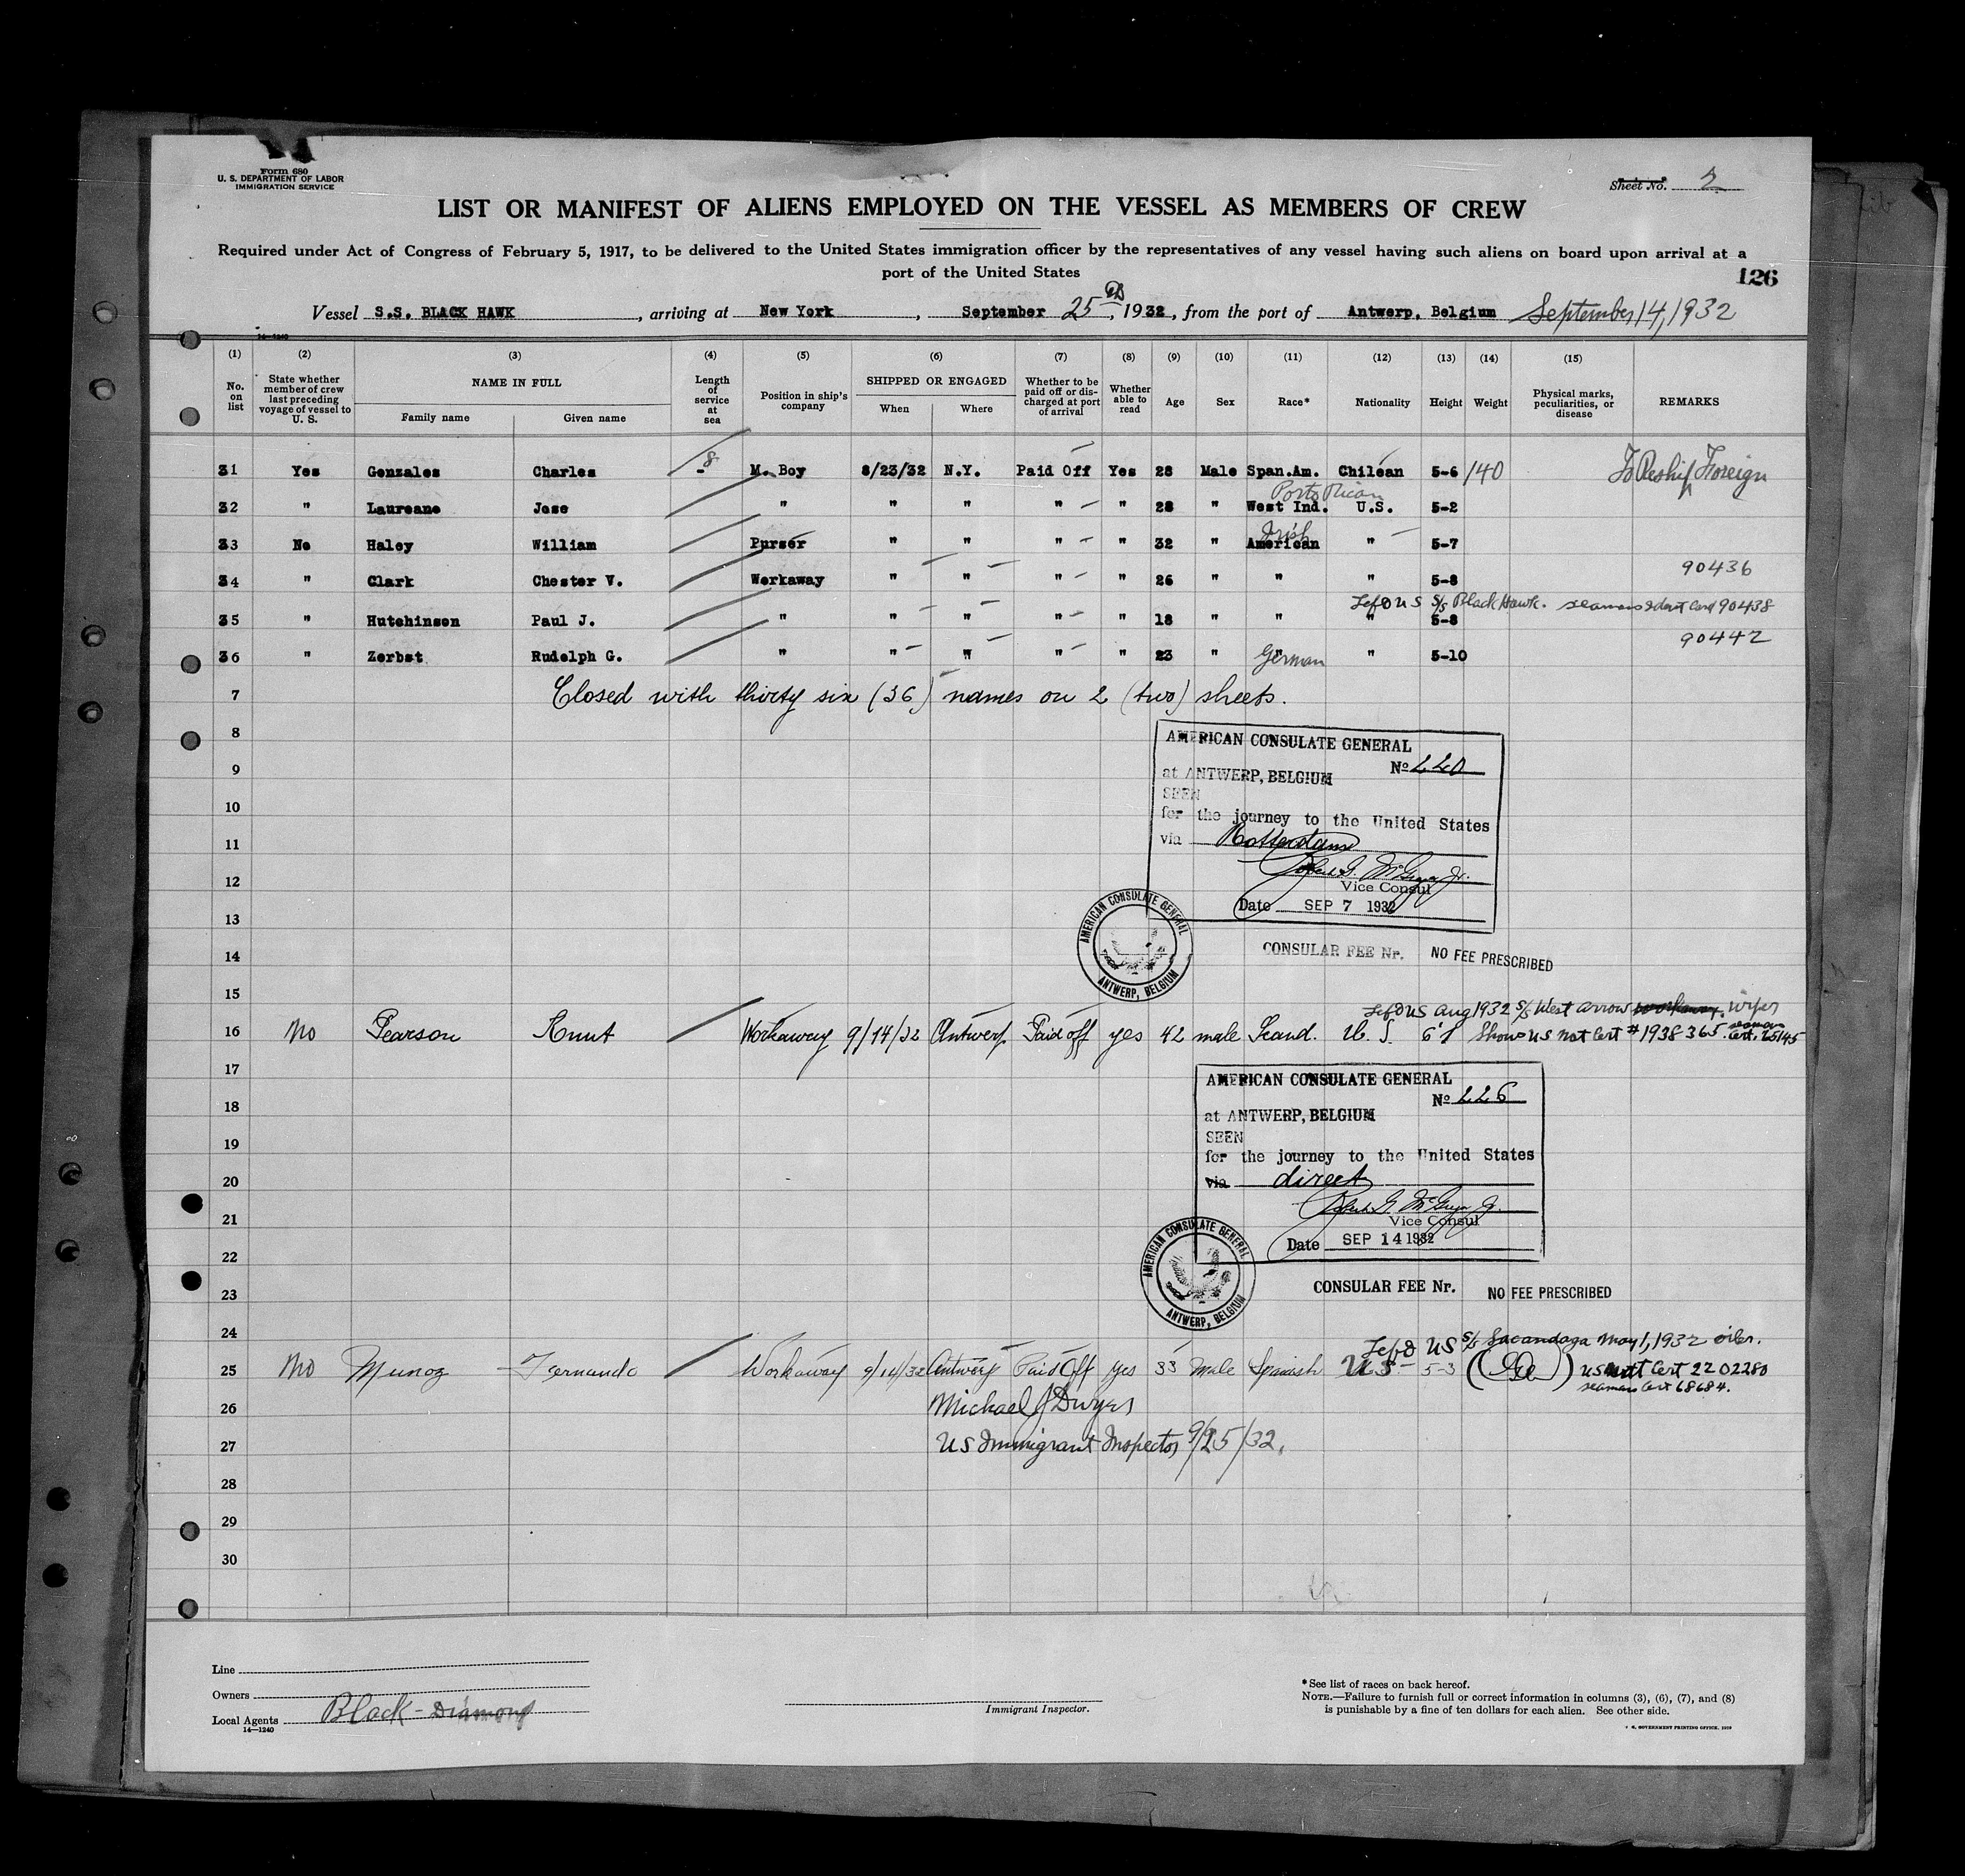 Form 680
U. S. DEPARTMENT OF LABOR
IMMIGRATION SERVICE
Sheet No. 2
LIST OR MANIFEST OF ALIENS EMPLOYED ON THE VESSEL AS MEMBERS OF CREW
Required under Act of Congress of February 5, 1917, to be delivered to the United States immigration officer by the representatives of any vessel having such aliens on board upon arrival at a
port of the United States
126
Vessel S.S. BLACK HAWK, arriving at New York, September 25th, 1932, from the port of Antwerp, Belgium September 14, 1932
14-1240
(1) (2) (3) (4) (5) (6) (7) (8) (9) (10) (11) (12) (13) (14) (15)
No. on list
State whether member of crew last preceding voyage of vessel to U. S.
NAME IN FULL
Family name Given name
Length of service at sea
Position in ship's company
SHIPPED OR ENGAGED
When Where
Whether to be paid off or discharged at port of arrival
Whether able to read
Age Sex Race* Nationality Height Weight
Physical marks, peculiarities, or disease
REMARKS
31 Yes Gonzales Charles 8 M. Boy 8/23/32 N.Y. Paid Off Yes 28 Male Span.Am. Chilean 5-6 140 To Reship Foreign
Porto Rican
32 " Laureano Jose " " " " " 28 " West Ind. U.S. 5-2
Irish
33 No Haley William Purser " " " " 32 " American " 5-7
34 " Clark Chester V. Workaway " " " " 26 " " " 5-8 90436
Left US S/S Black Hawk. seamans Ident Card 90438
35 " Hutchinson Paul J. " " " " " 18 " " " 5-8
36 " Zerbst Rudolph G. " " " " " 23 " " German " 5-10 90442
7 Closed with thirty six (36) names on 2 (two) sheets.
8
AMERICAN CONSULATE GENERAL
No 220
9
at ANTWERP, BELGIUM
SEEN
10
for the journey to the United States
11
via Rotterdam
12
Vice Consul
Date SEP 7 1932
13
AMERICAN CONSULATE GENERAL
ANTWERP, BELGIUM
14
CONSULAR FEE Nr. NO FEE PRESCRIBED
15
Left US Aug 1932 S/S West Arrow wiper
16 No Pearson Knut Workaway 9/14/32 Antwerp Paid off yes 42 male Scand. U. S. 6'1 Shows US Nat Cert # 1938365. seamans Cert. 25145
17
AMERICAN CONSULATE GENERAL
No 226
18
at ANTWERP, BELGIUM
19
SEEN
for the journey to the United States
20
via direct
21
Vice Consul
Date SEP 14 1932
22
AMERICAN CONSULATE GENERAL
ANTWERP, BELGIUM
23
CONSULAR FEE Nr. NO FEE PRESCRIBED
24
Left US S/S Sacandaga May 1, 1932 oiler.
25 No Munoz Fernando Workaway 9/14/32 Antwerp Paid Off yes 33 Male Spanish U.S. 5-3 US Nat Cert 2202280
seamans Cert 68684.
26 Michael J Dwyer
27 US Immigrant Inspector 9/25/32.
28
29
30
Line
Owners
Local Agents Black-Diamond
14—1240
Immigrant Inspector.
*See list of races on back hereof.
NOTE.—Failure to furnish full or correct information in columns (3), (6), (7), and (8)
is punishable by a fine of ten dollars for each alien. See other side.
GOVERNMENT PRINTING OFFICE